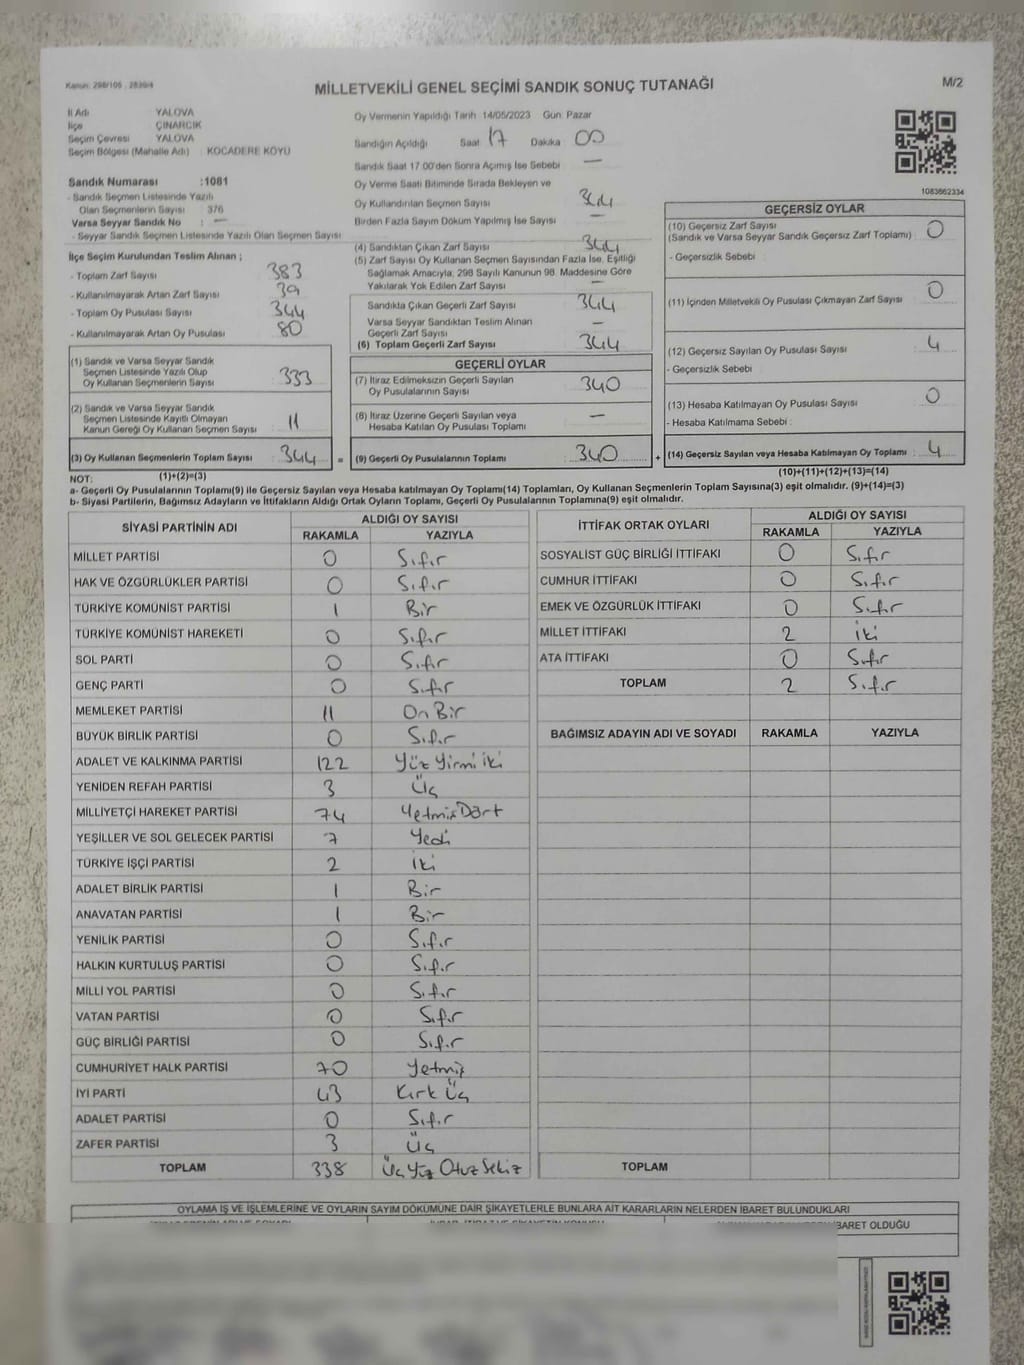 Kanun: 298/105 , 2839/4
MİLLETVEKİLİ GENEL SEÇİMİ SANDIK SONUÇ TUTANAĞI
M/2
İl Adı YALOVA
İlçe ÇINARCIK
Seçim Çevresi YALOVA
Seçim Bölgesi (Mahalle Adı) : KOCADERE KOYU
Sandık Numarası :1081
- Sandık Seçmen Listesinde Yazılı
Olan Seçmenlerin Sayısı : 376
Varsa Seyyar Sandık No : —
- Seyyar Sandık Seçmen Listesinde Yazılı Olan Seçmen Sayısı
İlçe Seçim Kurulundan Teslim Alınan ;
- Toplam Zarf Sayısı 383
- Kullanılmayarak Artan Zarf Sayısı 39
- Toplam Oy Pusulası Sayısı 344
- Kullanılmayarak Artan Oy Pusulası 80
(1) Sandık ve Varsa Seyyar Sandık
Seçmen Listesinde Yazılı Olup
Oy Kullanan Seçmenlerin Sayısı 333
(2) Sandık ve Varsa Seyyar Sandık
Seçmen Listesinde Kayıtlı Olmayan
Kanun Gereği Oy Kullanan Seçmen Sayısı 11
(3) Oy Kullanan Seçmenlerin Toplam Sayısı 344
(1)+(2)=(3)
Oy Vermenin Yapıldığı Tarih 14/05/2023 Gün: Pazar
Sandığın Açıldığı Saat 17 Dakika 00
Sandık Saat 17.00'den Sonra Açılmış İse Sebebi —
Oy Verme Saati Bitiminde Sırada Bekleyen ve
Oy Kullandırılan Seçmen Sayısı 344
Birden Fazla Sayım Döküm Yapılmış İse Sayısı —
(4) Sandıktan Çıkan Zarf Sayısı 344
(5) Zarf Sayısı Oy Kullanan Seçmen Sayısından Fazla İse, Eşitliği
Sağlamak Amacıyla, 298 Sayılı Kanunun 98. Maddesine Göre
Yakılarak Yok Edilen Zarf Sayısı —
Sandıkta Çıkan Geçerli Zarf Sayısı 344
Varsa Seyyar Sandıktan Teslim Alınan
Geçerli Zarf Sayısı —
(6) Toplam Geçerli Zarf Sayısı 344
GEÇERLİ OYLAR
(7) İtiraz Edilmeksizin Geçerli Sayılan
Oy Pusulalarının Sayısı 340
(8) İtiraz Üzerine Geçerli Sayılan veya
Hesaba Katılan Oy Pusulası Toplamı —
= (9) Geçerli Oy Pusulalarının Toplamı 340
1083862334
GEÇERSİZ OYLAR
(10) Geçersiz Zarf Sayısı
(Sandık ve Varsa Seyyar Sandık Geçersiz Zarf Toplamı) 0
- Geçersizlik Sebebi
(11) İçinden Milletvekili Oy Pusulası Çıkmayan Zarf Sayısı 0
(12) Geçersiz Sayılan Oy Pusulası Sayısı 4
- Geçersizlik Sebebi :
(13) Hesaba Katılmayan Oy Pusulası Sayısı 0
- Hesaba Katılmama Sebebi :
+ (14) Geçersiz Sayılan veya Hesaba Katılmayan Oy Toplamı 4
(10)+(11)+(12)+(13)=(14)
NOT:
a- Geçerli Oy Pusulalarının Toplamı(9) ile Geçersiz Sayılan veya Hesaba katılmayan Oy Toplamı(14) Toplamları, Oy Kullanan Seçmenlerin Toplam Sayısına(3) eşit olmalıdır. (9)+(14)=(3)
b- Siyasi Partilerin, Bağımsız Adayların ve İttifakların Aldığı Ortak Oyların Toplamı, Geçerli Oy Pusulalarının Toplamına(9) eşit olmalıdır.
SİYASİ PARTİNİN ADI ALDIĞI OY SAYISI
RAKAMLA YAZIYLA
MİLLET PARTİSİ 0 Sıfır
HAK VE ÖZGÜRLÜKLER PARTİSİ 0 Sıfır
TÜRKİYE KOMÜNİST PARTİSİ 1 Bir
TÜRKİYE KOMÜNİST HAREKETİ 0 Sıfır
SOL PARTİ 0 Sıfır
GENÇ PARTİ 0 Sıfır
MEMLEKET PARTİSİ 11 On Bir
BÜYÜK BİRLİK PARTİSİ 0 Sıfır
ADALET VE KALKINMA PARTİSİ 122 Yüz Yirmi iki
YENİDEN REFAH PARTİSİ 3 Üç
MİLLİYETÇİ HAREKET PARTİSİ 74 Yetmiş Dört
YEŞİLLER VE SOL GELECEK PARTİSİ 7 Yedi
TÜRKİYE İŞÇİ PARTİSİ 2 iki
ADALET BİRLİK PARTİSİ 1 Bir
ANAVATAN PARTİSİ 1 Bir
YENİLİK PARTİSİ 0 Sıfır
HALKIN KURTULUŞ PARTİSİ 0 Sıfır
MİLLİ YOL PARTİSİ 0 Sıfır
VATAN PARTİSİ 0 Sıfır
GÜÇ BİRLİĞİ PARTİSİ 0 Sıfır
CUMHURİYET HALK PARTİSİ 70 Yetmiş
İYİ PARTİ 43 Kırk Üç
ADALET PARTİSİ 0 Sıfır
ZAFER PARTİSİ 3 Üç
TOPLAM 338 Üç Yüz Otuz Sekiz
İTTİFAK ORTAK OYLARI ALDIĞI OY SAYISI
RAKAMLA YAZIYLA
SOSYALİST GÜÇ BİRLİĞİ İTTİFAKI 0 Sıfır
CUMHUR İTTİFAKI 0 Sıfır
EMEK VE ÖZGÜRLÜK İTTİFAKI 0 Sıfır
MİLLET İTTİFAKI 2 iki
ATA İTTİFAKI 0 Sıfır
TOPLAM 2 Sıfır
BAĞIMSIZ ADAYIN ADI VE SOYADI RAKAMLA YAZIYLA
TOPLAM
OYLAMA İŞ VE İŞLEMLERİNE VE OYLARIN SAYIM DÖKÜMÜNE DAİR ŞİKAYETLERLE BUNLARA AİT KARARLARIN NELERDEN İBARET BULUNDUKLARI
İBARET OLDUĞU